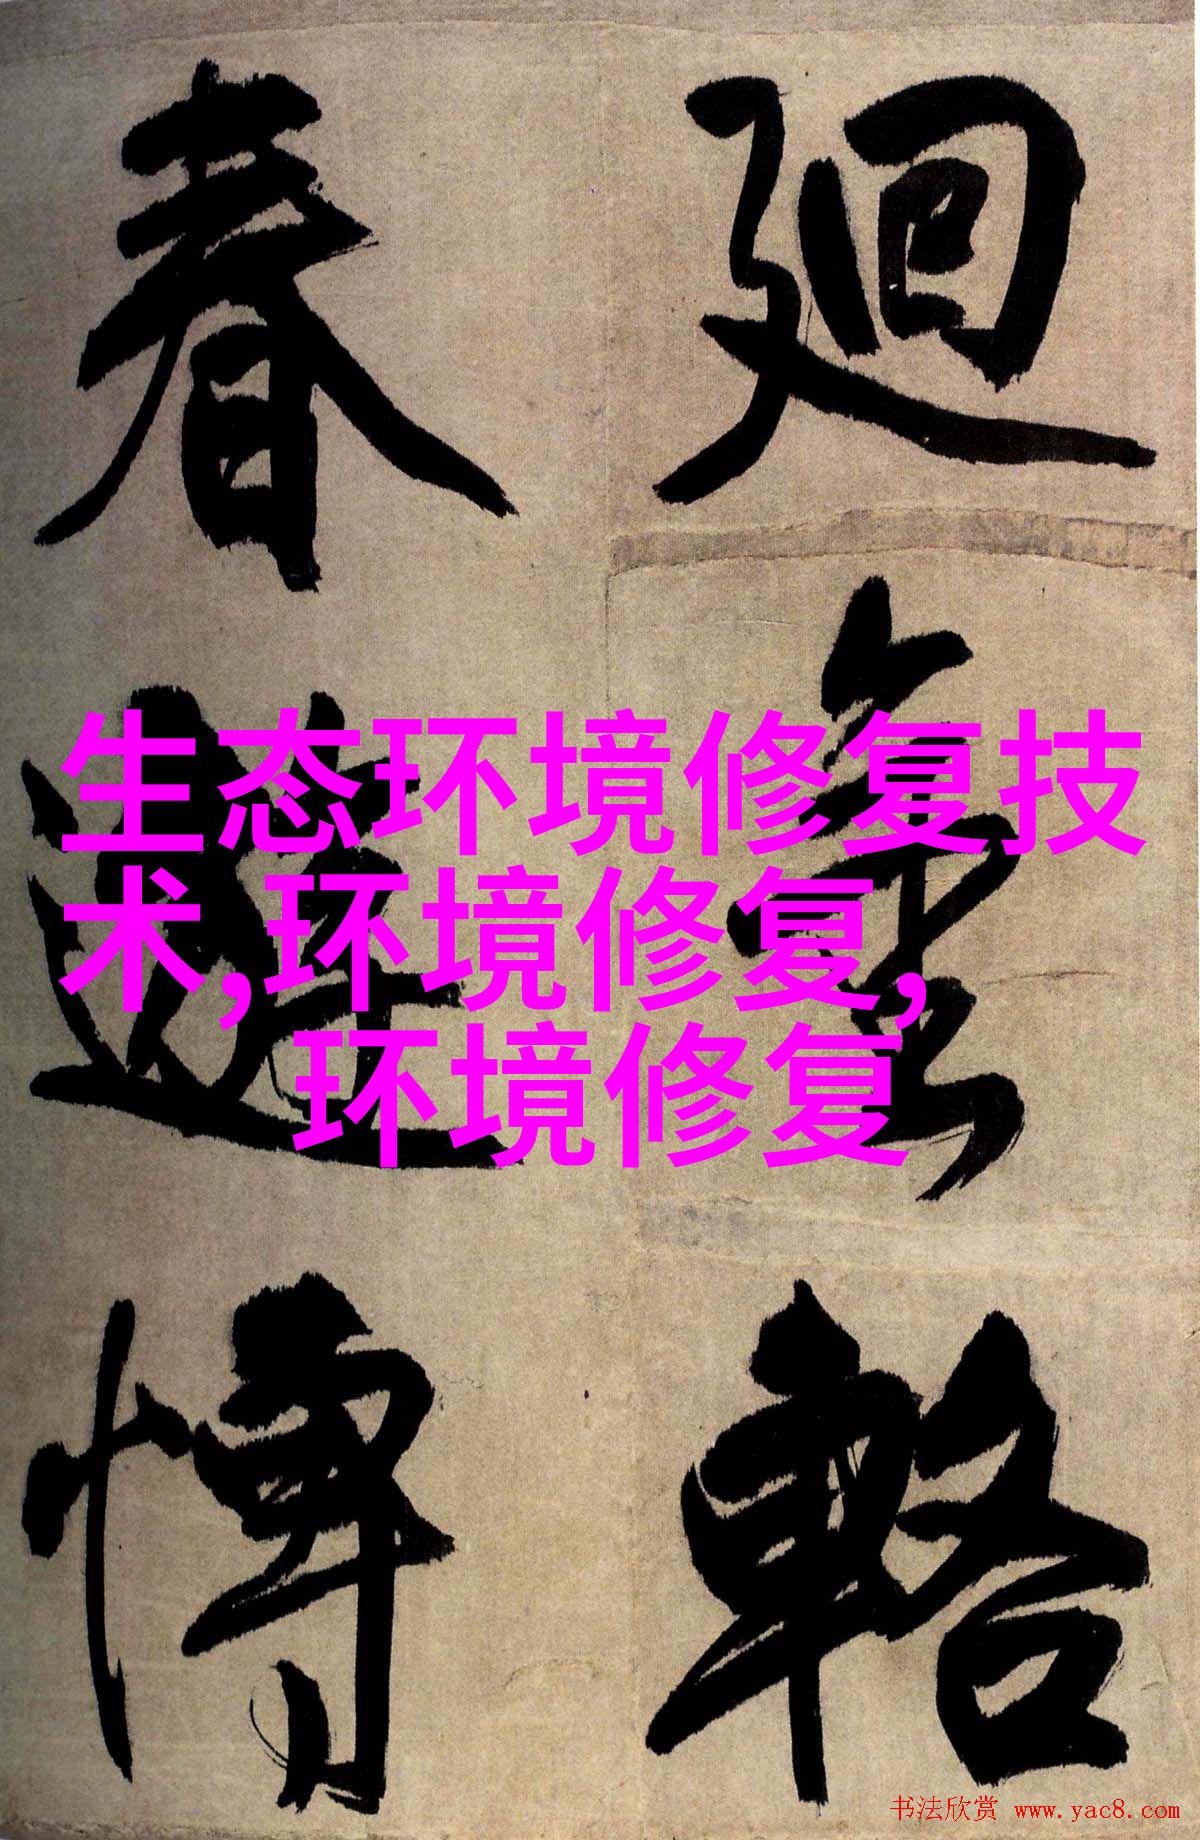 廻金輅
春遊愽
生态环境修复技
术,环境修复,
环境修复
书法欣赏 www.yac8.com